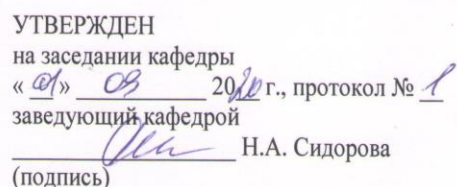 УТВЕРЖДЕН
на заседании кафедры
« 01 » 09 2020 г., протокол № 1
заведующий кафедрой
Н.А. Сидорова
(подпись)